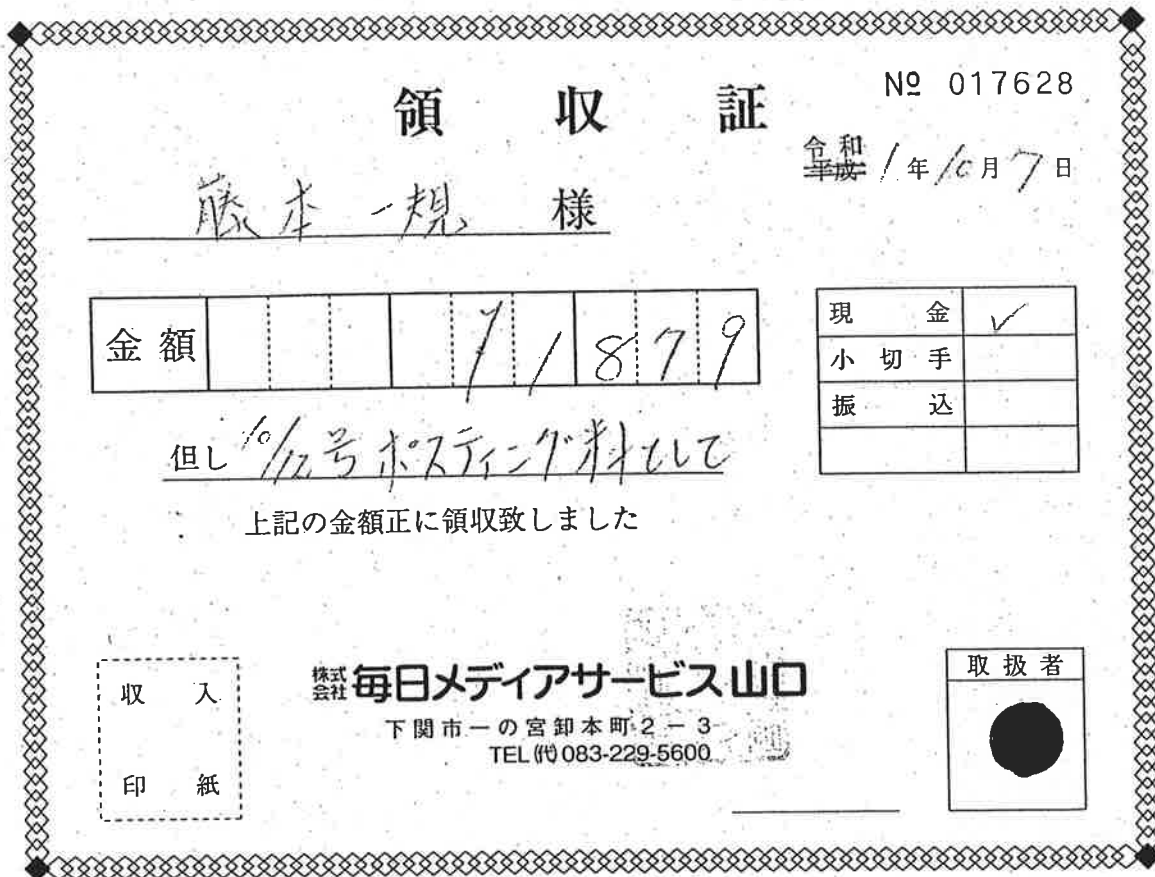 № 017628
領収証
令和
平成 1年10月7日
藤本一規 様
金額 71879
現金 ✓
小切手
振込
但し 10/12号ポスティング料として
上記の金額正に領収致しました
収入
印紙
株式会社 毎日メディアサービス山口
下関市一の宮卸本町2-3
TEL(代)083-229-5600
取扱者